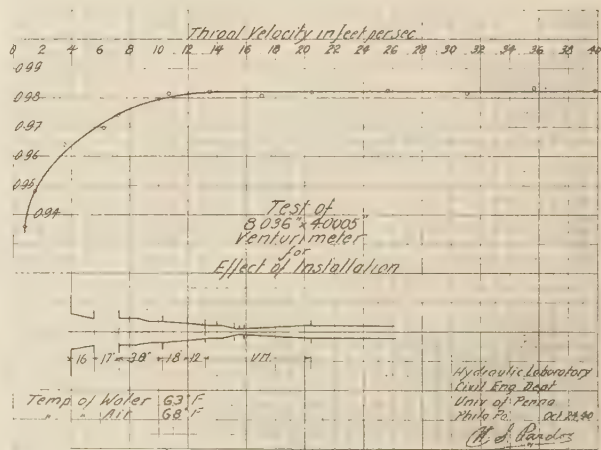 Throat Velocity in feet per sec.
0 2 4 6 8 10 12 14 16 18 20 22 24 26 28 30 32 34 36 38 40
0.99
0.98
0.97
0.96
0.95
0.94
Test of
8.036" x 4.0005"
Venturimeter
for
Effect of Installation
16 17" 38" 18 12 V.M.
Temp of Water 63°F
" " Air 68°F
Hydraulic Laboratory
Civil Eng Dept
Univ of Penna
Phila Pa. Oct 40
W. S. Pardoe